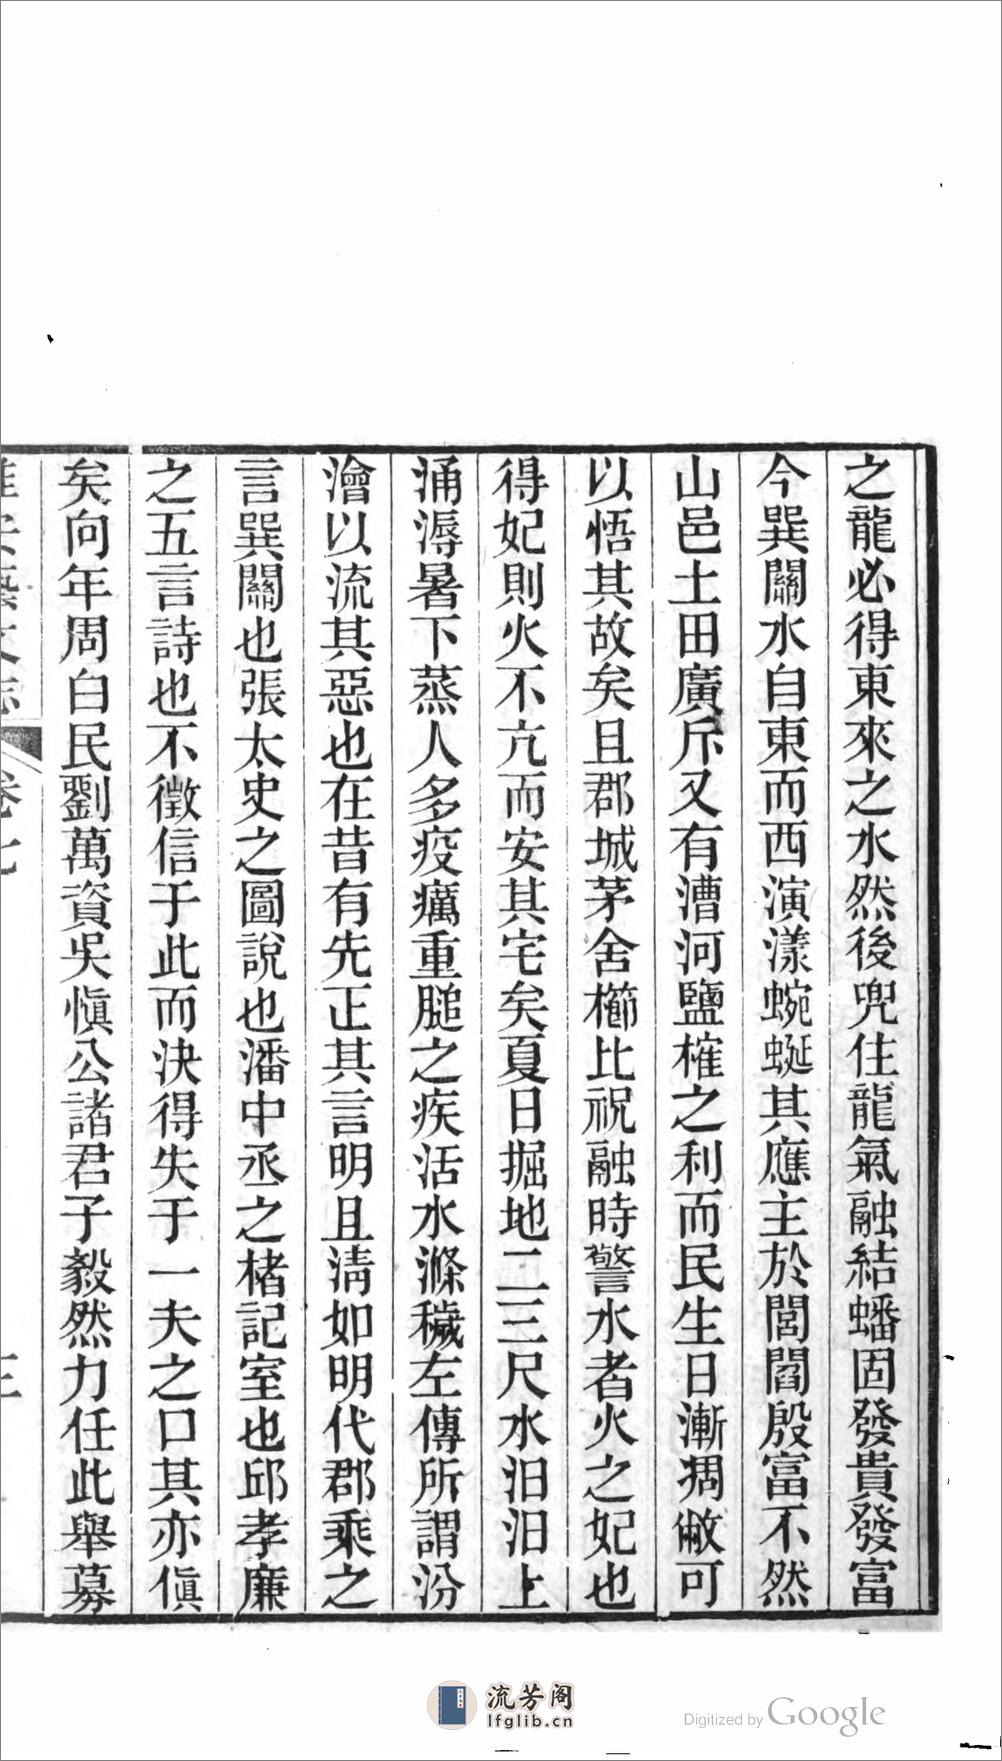 之龍必得東來之水然後兜住龍氣融結蟠固發貴發富
今巽關水自東而西演漾蜿蜒其應主於閭閻殷富不然
山邑土田廣斥又有漕河鹽榷之利而民生日漸凋敝可
以悟其故矣且郡城茅舍櫛比祝融時警水者火之妃也
得妃則火不亢而安其宅矣夏日掘地二三尺水汩汩上
涌溽暑下蒸人多疫癘重膇之疾活水滌穢左傳所謂汾
澮以流其惡也在昔有先正其言明且清如明代郡乘之
言巽關也張太史之圖說也潘中丞之楮記室也邱孝廉
之五言詩也不徵信于此而決得失于一夫之口其亦傎
矣向年周白民劉萬資吳愼公諸君子毅然力任此舉募
淮安藝文志 卷七 三
流芳阁
lfglib.cn
Digitized by Google